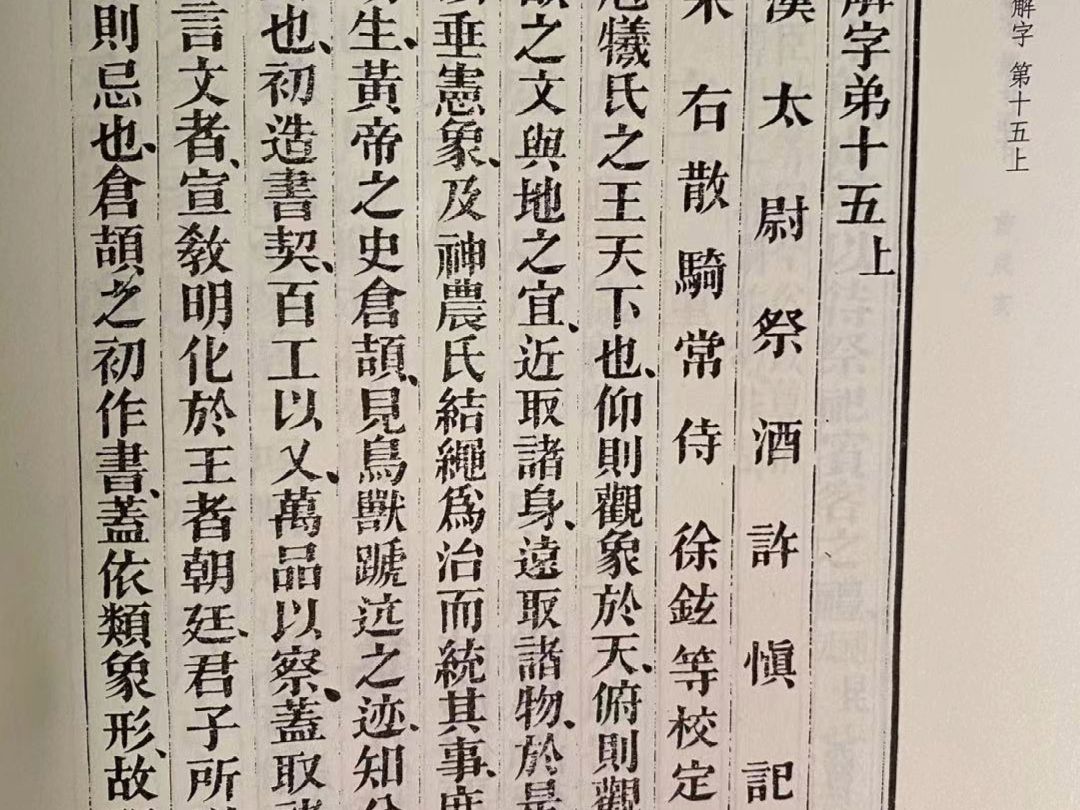 解字 第十五上
解字弟十五上
漢太尉祭酒許慎記
宋右散騎常侍徐鉉等校定
庖犧氏之王天下也、仰則觀象於天、俯則觀
之文與地之宜、近取諸身、遠取諸物、於是
垂憲象、及神農氏結繩為治而統其事、庶
生、黃帝之史倉頡、見鳥獸蹏迒之迹、知分
也、初造書契、百工以乂、萬品以察、蓋取
言文者、宣教明化於王者朝廷、君子所
則忌也、倉頡之初作書、蓋依類象形、故